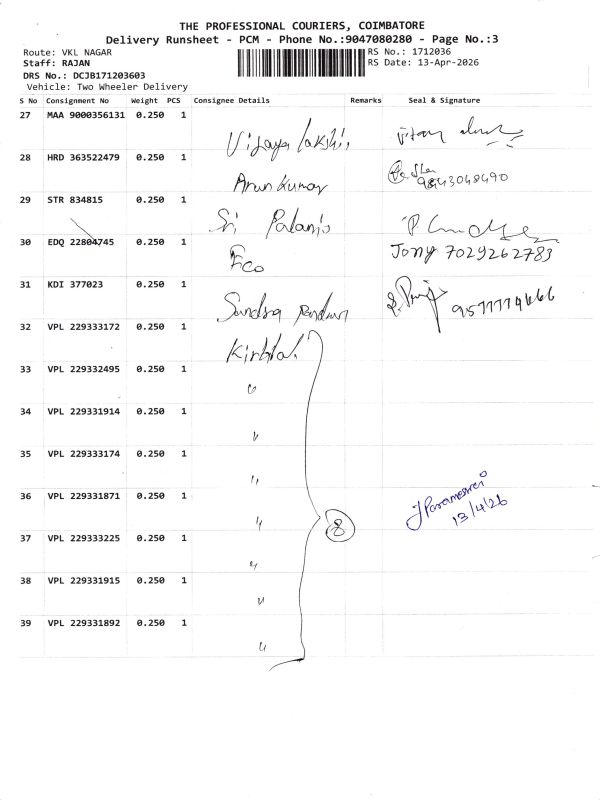 THE PROFESSIONAL COURIERS, COIMBATORE
Delivery Runsheet - PCM - Phone No.:9047080280 - Page No.:3
Route: VKL NAGAR RS No.: 1712036
Staff: RAJAN RS Date: 13-Apr-2026
DRS No.: DCJB171203603
Vehicle: Two Wheeler Delivery
S No Consignment No Weight PCS Consignee Details Remarks Seal & Signature
27 MAA 9000356131 0.250 1
Vijaya lakshi
28 HRD 363522479 0.250 1
Arun Kumar 9843048490
29 STR 834815 0.250 1
Sri Palani
30 EDQ 22804745 0.250 1
Eco Jony 7029262783
31 KDI 377023 0.250 1
Sundra 9577774666
32 VPL 229333172 0.250 1
33 VPL 229332495 0.250 1
"
34 VPL 229331914 0.250 1
"
35 VPL 229333174 0.250 1
"
36 VPL 229331871 0.250 1
" 8 J Parameswari
13/4/26
37 VPL 229333225 0.250 1
"
38 VPL 229331915 0.250 1
"
39 VPL 229331892 0.250 1
"